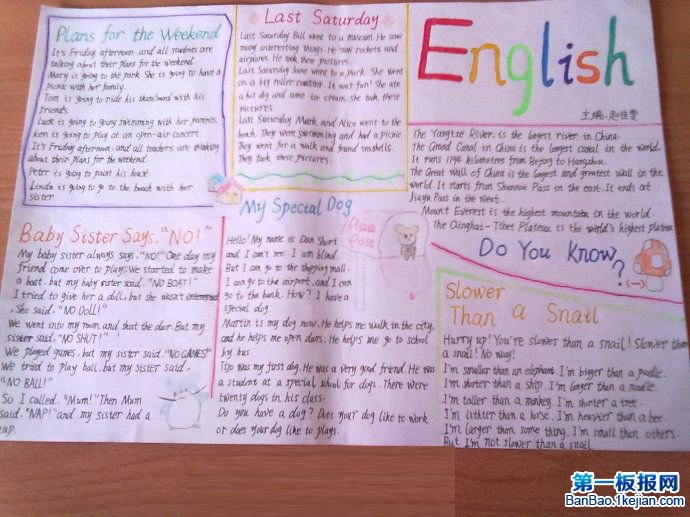 Plans for the Weekend
It's Friday afternoon. and all students are
talking about their plans for the weekend.
Mary is going to the park. She is going to have a
picnic with her family.
Tom is going to ride his skateboard with his
friends.
Luck is going to going swimming with her parents.
ken is going to play at an open-air concert.
It's Friday afternoon. and all teachers are thinking
about their plans for the weekend.
Peter is going to paint his house
Linda is going to go to the beach with her
Sister
Last Saturday
Last Saturday Bill went to a museum. He saw
many interesting things. He saw rockets and
airplanes. He took these pictures.
Last Saturday Jane went to a park. She went
on a big roller coaster. It was fun! She ate
a hot dog and some ice cream. She took these
pictures.
Last Saturday Mark and Alice went to the
beach. They went swimming and had a picnic
They went for a walk and friend seashells.
They took these pictures.
English
主编:赵佳雯
The Yangtze River is the largest river in China.
The Grand Canal in China is the largest canal in the world
It runs 1794 kilometres from Beijing to Hangzhou.
The Great Wall of China is the longest and greatest wall in the
world. It starts from Shanhai Pass in the east. It ends at
Jiayu Pass in the west.
Mount Everest is the highest mountain in the world.
The Qinghai-Tibet Plateau is the world's highest plateau
Do You Know?
Baby Sister Says, "NO!"
My baby sister always says. "NO!" One day my
friend come over to play. We started to make
a boat. but my baby sister said. "NO BOAT!"
I tried to give her a doll, but she wasn't interested
. She said. "NO DOLL!"
We went into my room and shut the door. But my
sister said. "NO SHUT!"
We played games. but my sister said. "NO GAMES!"
We tried to play ball, but my sister said.
"NO BALL!"
So I called. "Mum!" Then Mum
said. "NAP!" and my sister had a
nap.
My Special Dog
Hello! My name is Dan Short
and I can't see. I am blind.
But I can go to the shopping mall.
I can go to the airport. and I can
go to the bank. How? I have a
special dog.
Martin is my dog now. He helps me walk in the city,
and he helps me open doors. He helps me go to school
by bus
Tijo was my first dog. He was a very good friend. He was
a student at a special school for dogs. There were
twenty dogs in his class.
Do you have a dog? Does your dog like to work
or does your dog like to plays.
Slower
Than a Snail
Hurry up! You're slower than a snail! Slower than
a snail! No way!
I'm smaller than an elephant. I'm bigger than a poodle.
I'm shorter than a ship. I'm longer than a noodle.
I'm taller than a monkey. I'm shorter a tree.
I'm lithter than a horse. I'm heavier than a bee.
I'm larger than some thing. I'm small than others.
But I'm not slower than a snail.
第一板报网
BanBao.1kejian.com